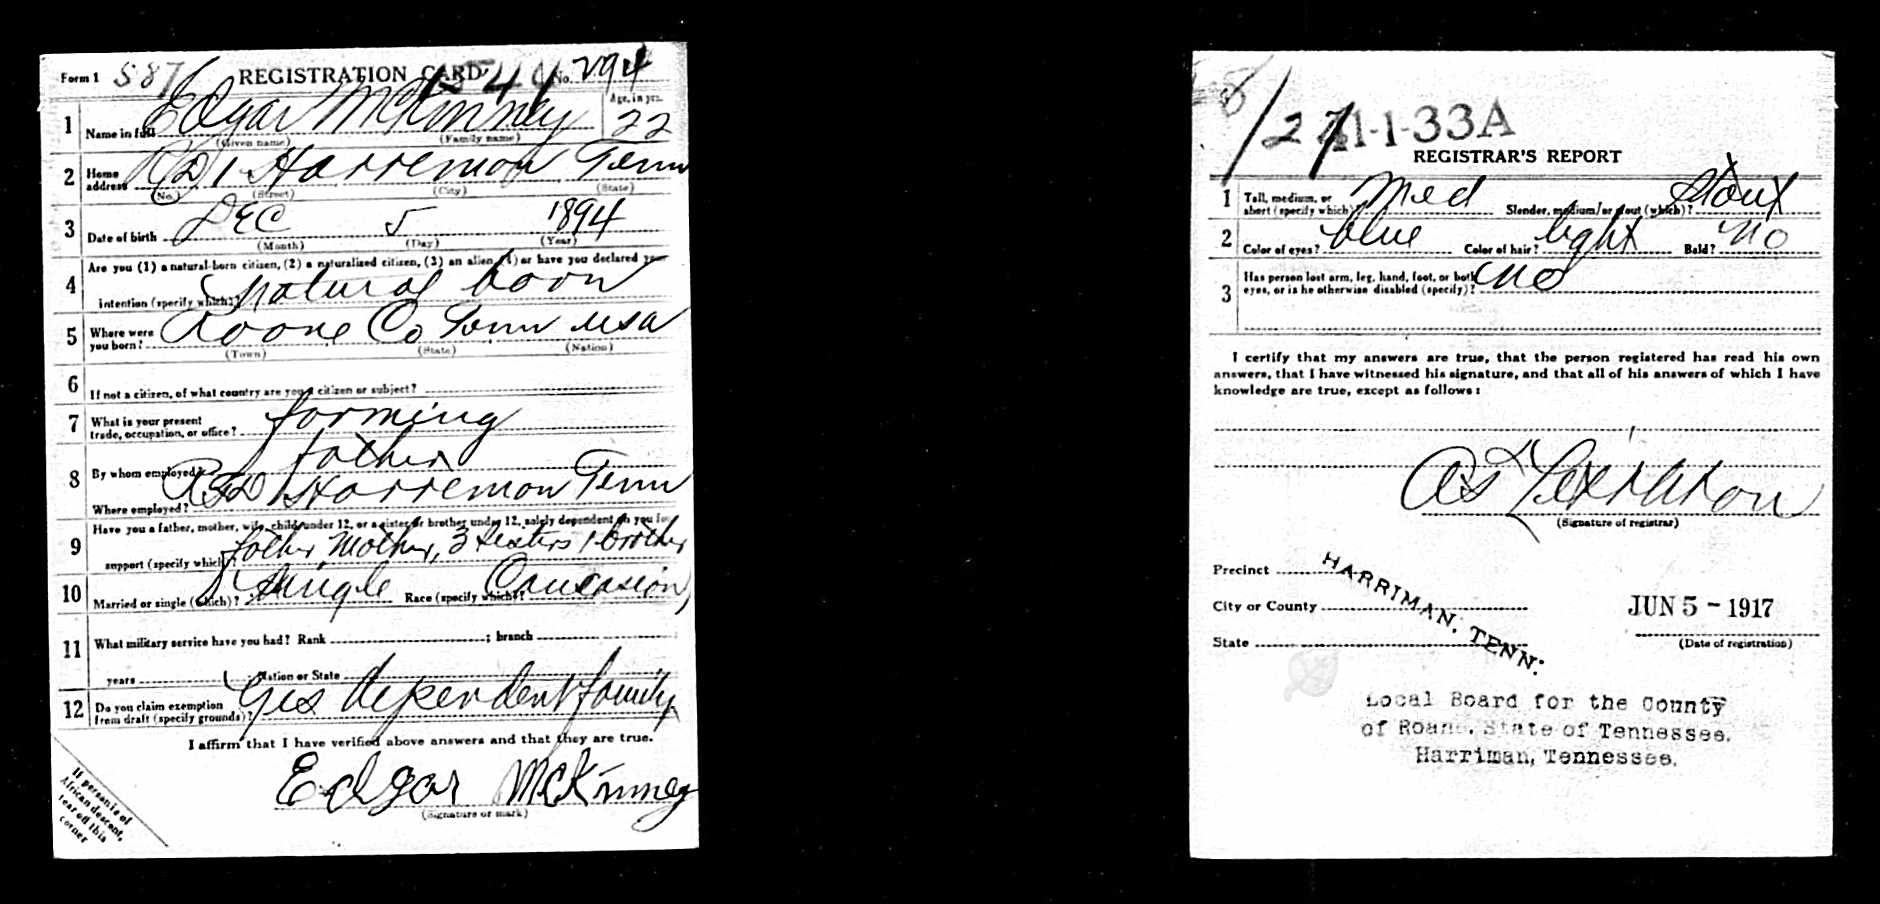 Form 1 587 REGISTRATION CARD 1541 No. 294
1 Name in full Edgar McKinney Age, in yrs. 22
(Given name) (Family name)
2 Home address RD 1 Harremon Tenn
(No.) (Street) (City) (State)
3 Date of birth DEC 5 1894
(Month) (Day) (Year)
4 Are you (1) a natural-born citizen, (2) a naturalized citizen, (3) an alien, (4) or have you declared your
intention (specify which)? natural born
5 Where were you born? Roane Co Tenn USA
(Town) (State) (Nation)
6 If not a citizen, of what country are you a citizen or subject?
7 What is your present trade, occupation, or office? farming
8 By whom employed? father
Where employed? RFD 1 Harremon Tenn
9 Have you a father, mother, wife, child under 12, or a sister or brother under 12, solely dependent on you for
support (specify which)? father Mother, 3 sisters 1 brother
10 Married or single (which)? single Race (specify which)? Caucasion
11 What military service have you had? Rank ; branch
years ; Nation or State
12 Do you claim exemption from draft (specify grounds)? Yes dependent family
I affirm that I have verified above answers and that they are true.
Edgar McKinney
(Signature or mark)
If person is of
African descent,
tear off this
corner
1-1-33A
REGISTRAR'S REPORT
1 Tall, medium, or short (specify which)? Med Slender, medium, or stout (which)? Stout
2 Color of eyes? blue Color of hair? light Bald? no
3 Has person lost arm, leg, hand, foot, or both
eyes, or is he otherwise disabled (specify)? no
I certify that my answers are true, that the person registered has read his own
answers, that I have witnessed his signature, and that all of his answers of which I have
knowledge are true, except as follows:
(Signature of registrar)
Precinct
City or County
State
HARRIMAN, TENN.
JUN 5 - 1917
(Date of registration)
Local Board for the County
of Roane, State of Tennessee.
Harriman, Tennessee.